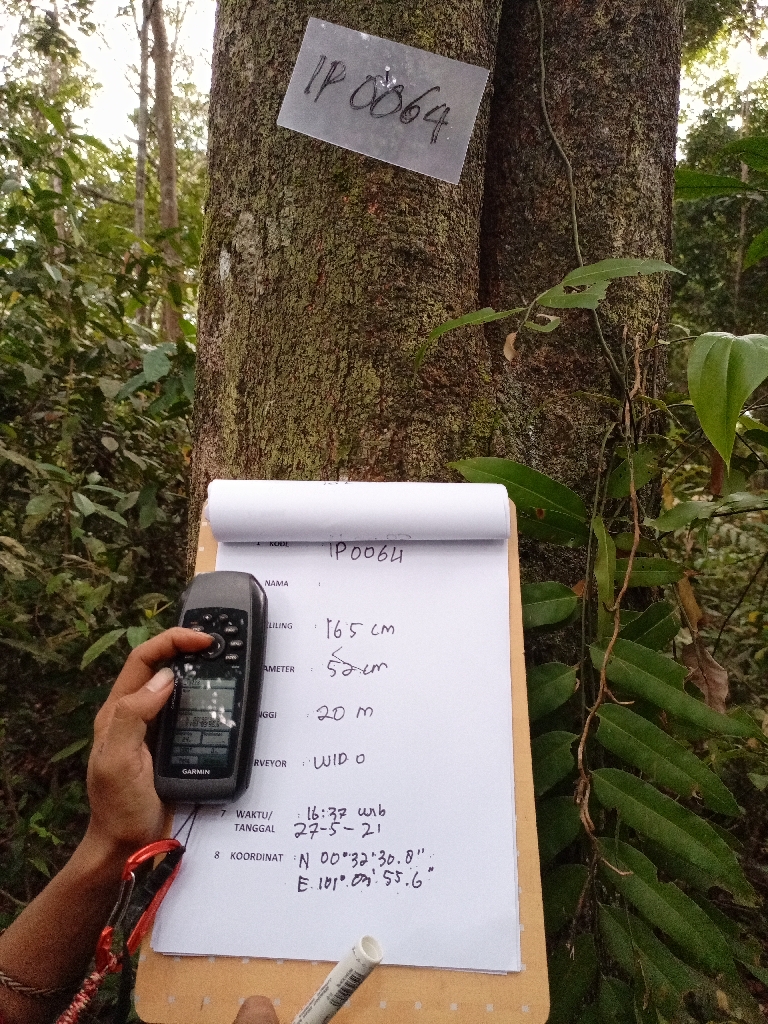 IP 0064
KODE IP0064
NAMA :
LILING : 165 cm
AMETER : 52 cm
NGGI : 20 m
RVEYOR : WIDO
7 WAKTU/ : 16:37 wib
TANGGAL 27-5-21
8 KOORDINAT : N 00° 32' 30.8"
E 101° 03' 55.6"
GARMIN